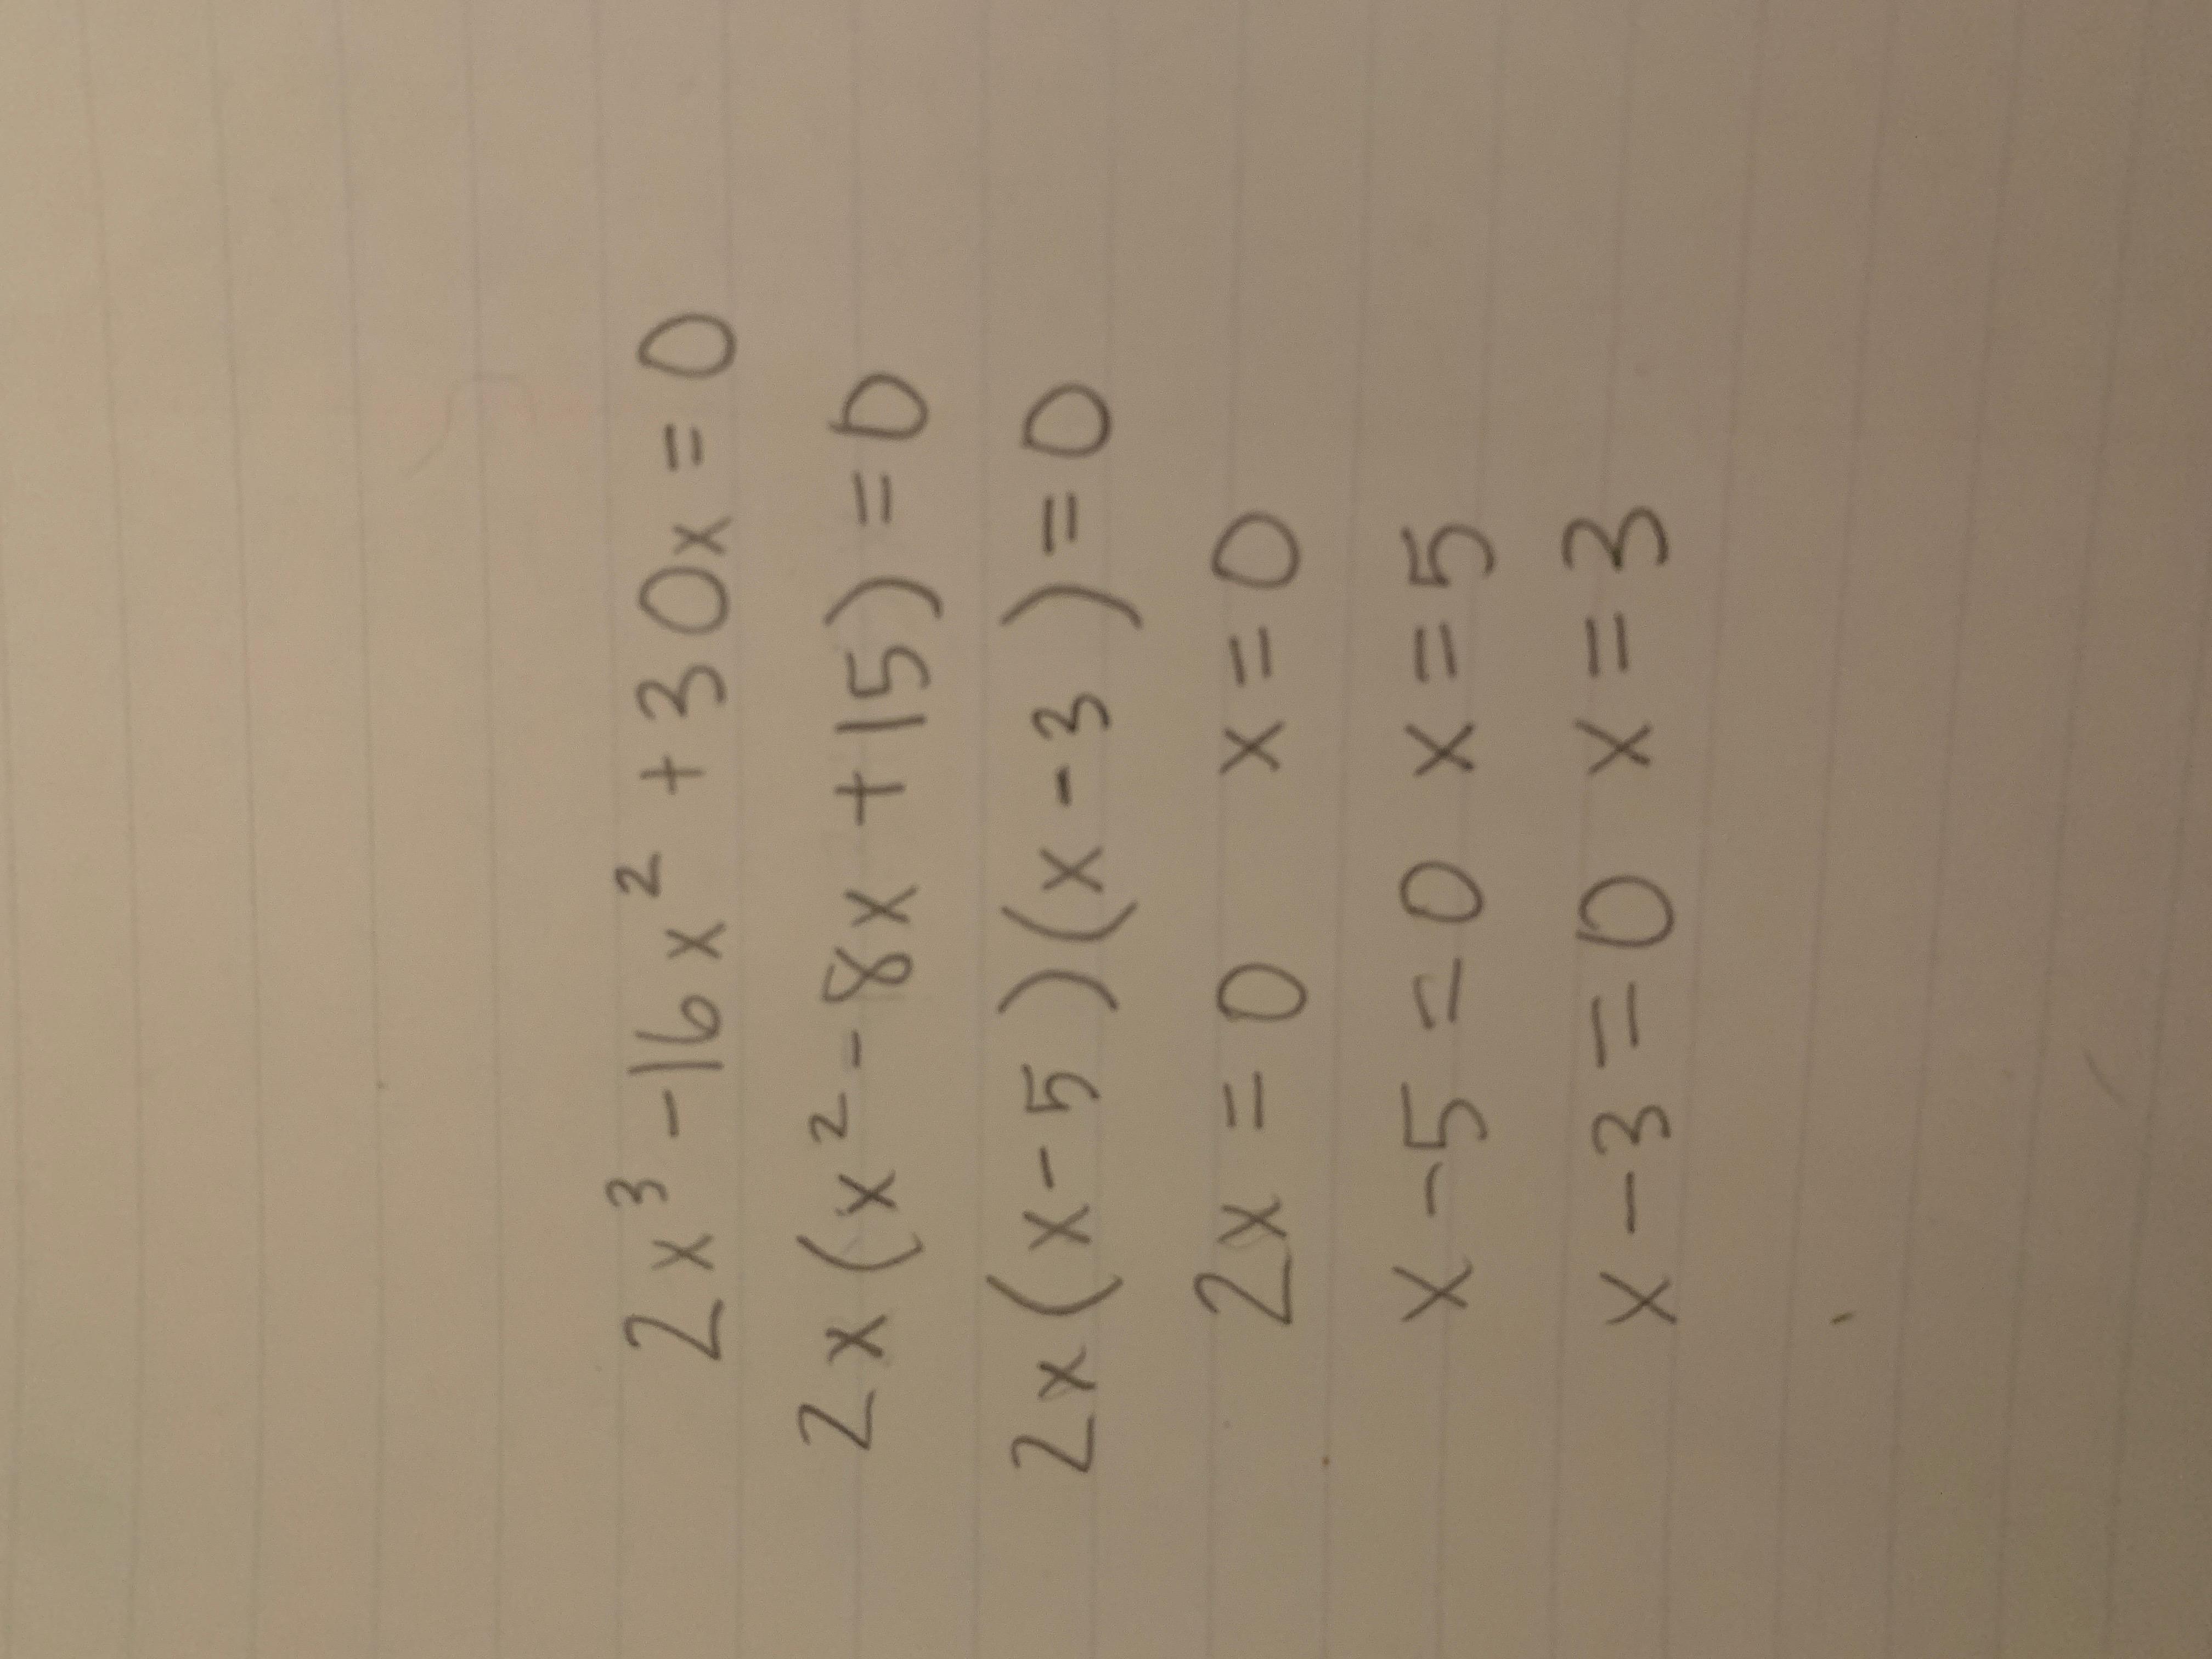 2x³ -16x² + 30x = 0
2x(x² - 8x + 15) = 0
2x(x-5)(x-3) = 0
2x = 0 x = 0
x - 5 = 0 x = 5
x - 3 = 0 x = 3